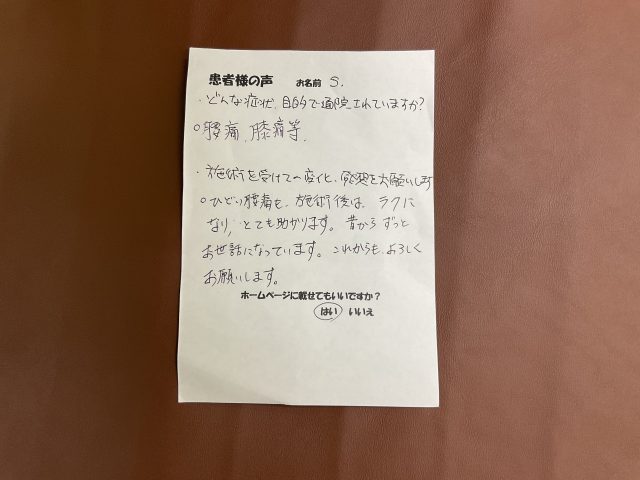 患者様の声 お名前 S.
・どんな症状、目的で通院されていますか?
○腰痛、膝痛等、
・施術を受けての変化、感想をお願いします
○ひどい腰痛も、施術後は、ラクに
なり、とても助かります。昔からずっと
お世話になっています。これからも、よろしく
お願いします。
ホームページに載せてもいいですか?
はい いいえ